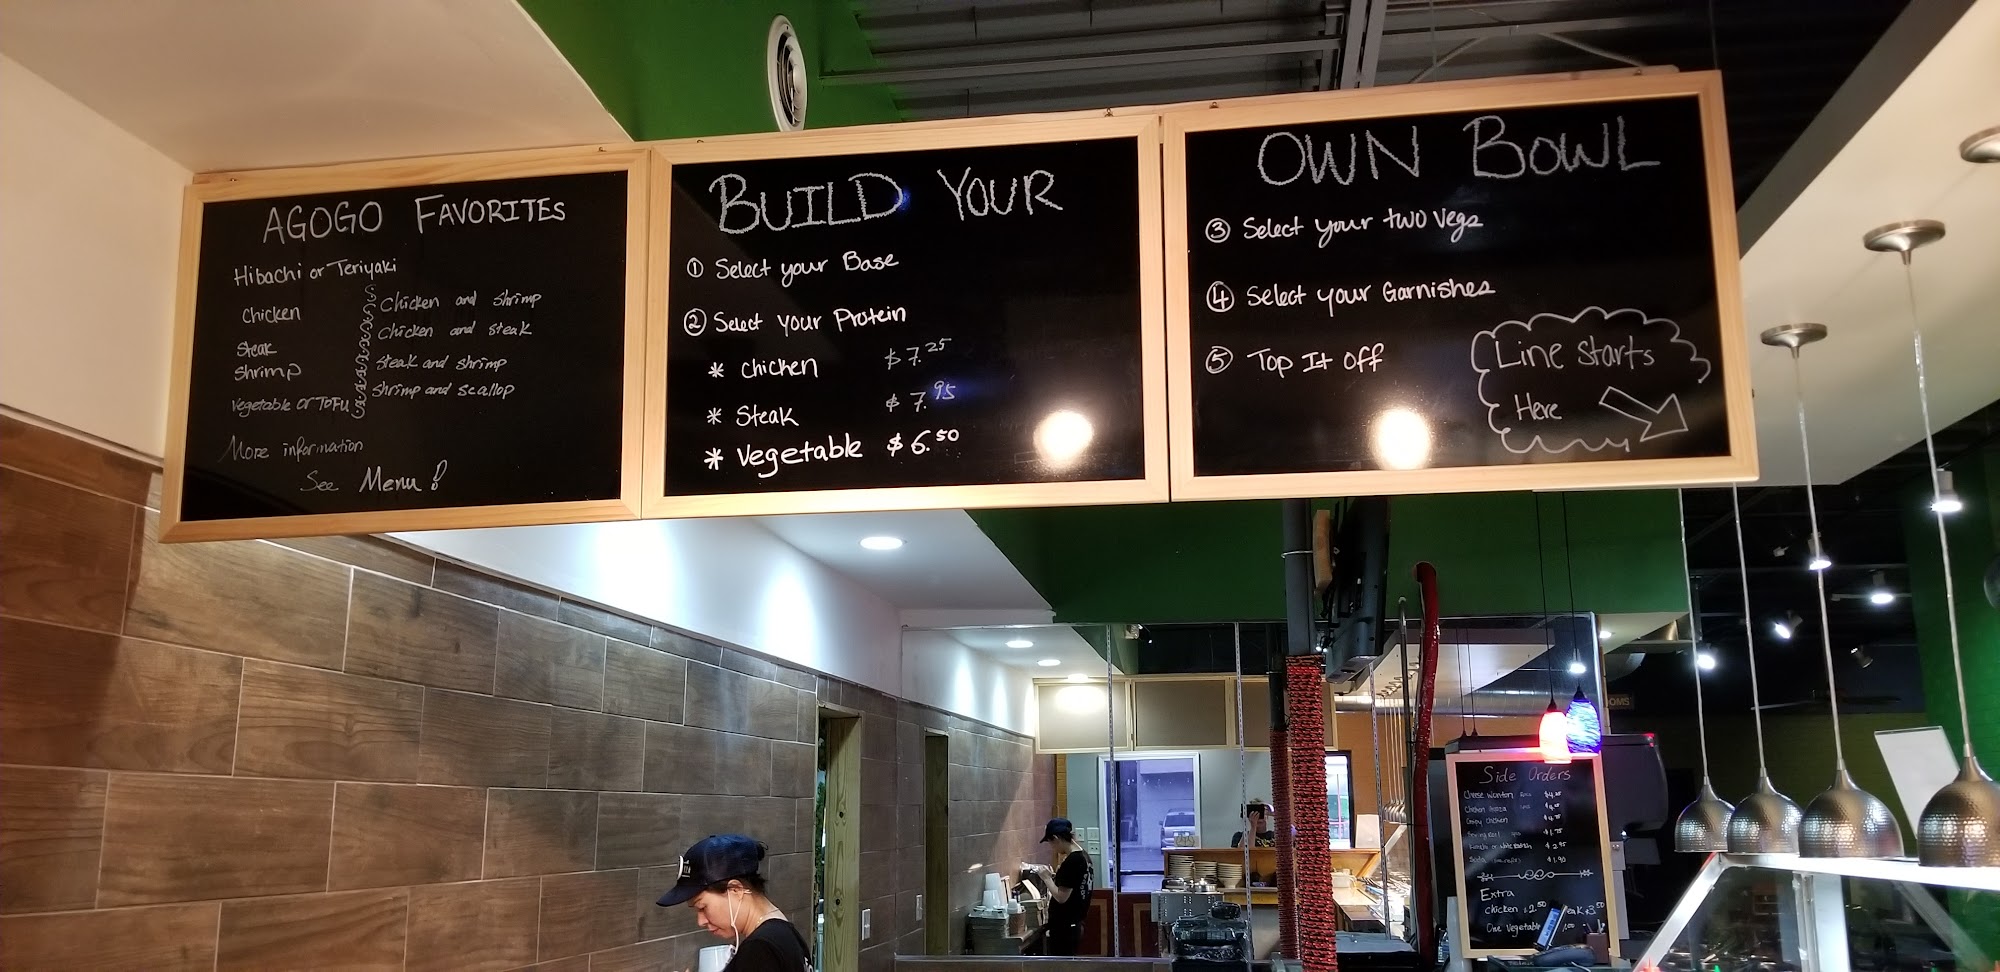 AGOGO FAVORITES
Hibachi or Teriyaki
Chicken
Steak
Shrimp
Vegetable or TOFU
Chicken and shrimp
Chicken and steak
Steak and shrimp
Shrimp and scallop
More information
See Menu!
BUILD YOUR
① Select your Base
② Select your Protein
* Chicken $7.25
* Steak $7.95
* Vegetable $6.50
OWN BOWL
③ Select your two Vegs
④ Select your Garnishes
⑤ Top It off
Line starts
Here
Side Orders
Cheese Wonton
Crispy Chicken
Extra
Chicken $2.50
One Vegetable